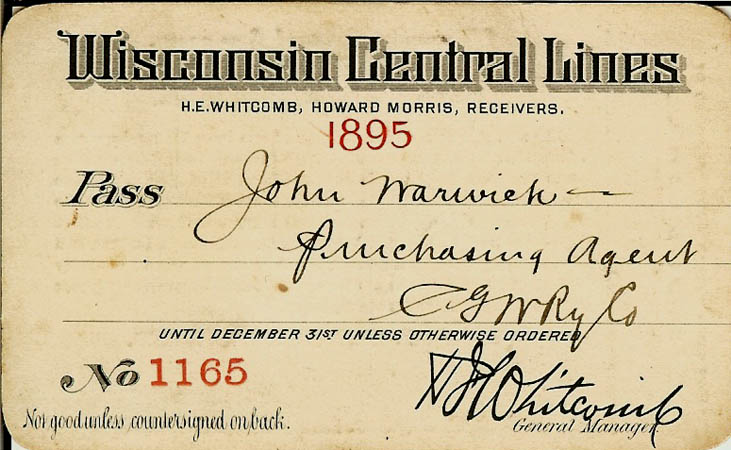 Wisconsin Central Lines
H.E. WHITCOMB, HOWARD MORRIS, RECEIVERS.
1895
Pass John Warwick —
Purchasing Agent
C G W Ry Co
UNTIL DECEMBER 31ST UNLESS OTHERWISE ORDERED
No 1165
H F Whitcomb
General Manager
Not good unless countersigned on back.